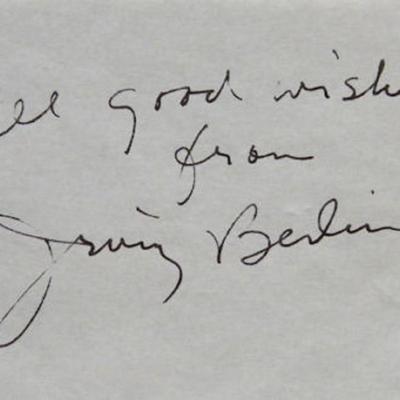 All good wishes
from
Irving Berlin